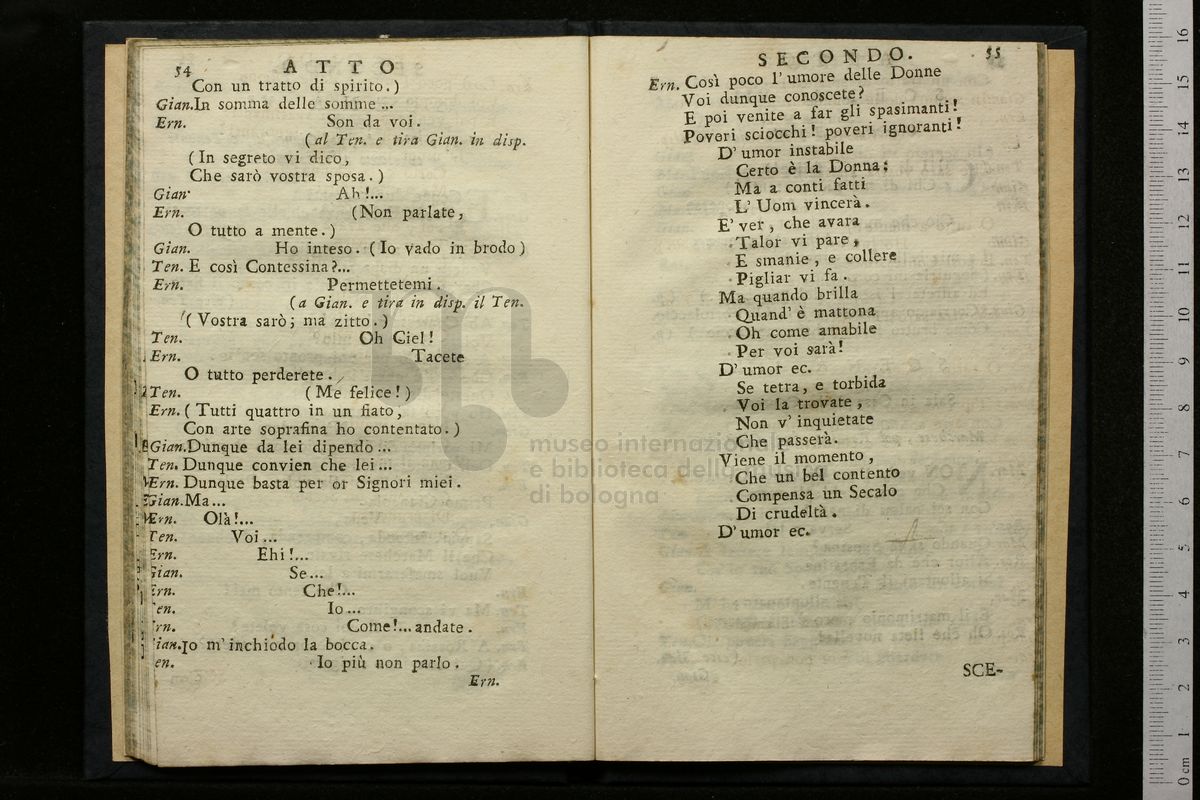 54 ATTO
Con un tratto di spirito.)
Gian.In somma delle somme ...
Ern. Son da voi.
(al Ten. e tira Gian. in disp.
(In segreto vi dico,
Che sarò vostra sposa.)
Gian. Ah!...
Ern. (Non parlate,
O tutto a mente.)
Gian. Ho inteso. (Io vado in brodo)
Ten. E così Contessina?...
Ern. Permettetemi.
(a Gian. e tira in disp. il Ten.
(Vostra sarò; ma zitto.)
Ten. Oh Ciel!
Ern. Tacete
O tutto perderete.
Ten. (Me felice!)
Ern. (Tutti quattro in un fiato,
Con arte soprafina ho contentato.)
Gian.Dunque da lei dipendo...
Ten. Dunque convien che lei...
Ern. Dunque basta per or Signori miei.
Gian.Ma...
Ern. Olà!...
Ten. Voi...
Ern. Ehi!...
Gian. Se...
Ern. Che!...
Ten. Io...
Ern. Come!... andate.
Gian.Io m'inchiodo la bocca.
Ten. Io più non parlo.
Ern.
SECONDO. 55
Ern. Così poco l'umore delle Donne
Voi dunque conoscete?
E poi venite a far gli spasimanti!
Poveri sciocchi! poveri ignoranti!
D'umor instabile
Certo è la Donna:
Ma a conti fatti
L'Uom vincerà.
E' ver, che avara
Talor vi pare,
E smanie, e collere
Pigliar vi fa.
Ma quando brilla
Quand' è mattona
Oh come amabile
Per voi sarà!
D'umor ec.
Se tetra, e torbida
Voi la trovate,
Non v'inquietate
Che passerà.
Viene il momento,
Che un bel contento
Compensa un Secalo
Di crudeltà.
D'umor ec.
SCE-
museo internazionale
e biblioteca della musica
di bologna
0 cm 1 2 3 4 5 6 7 8 9 10 11 12 13 14 15 16